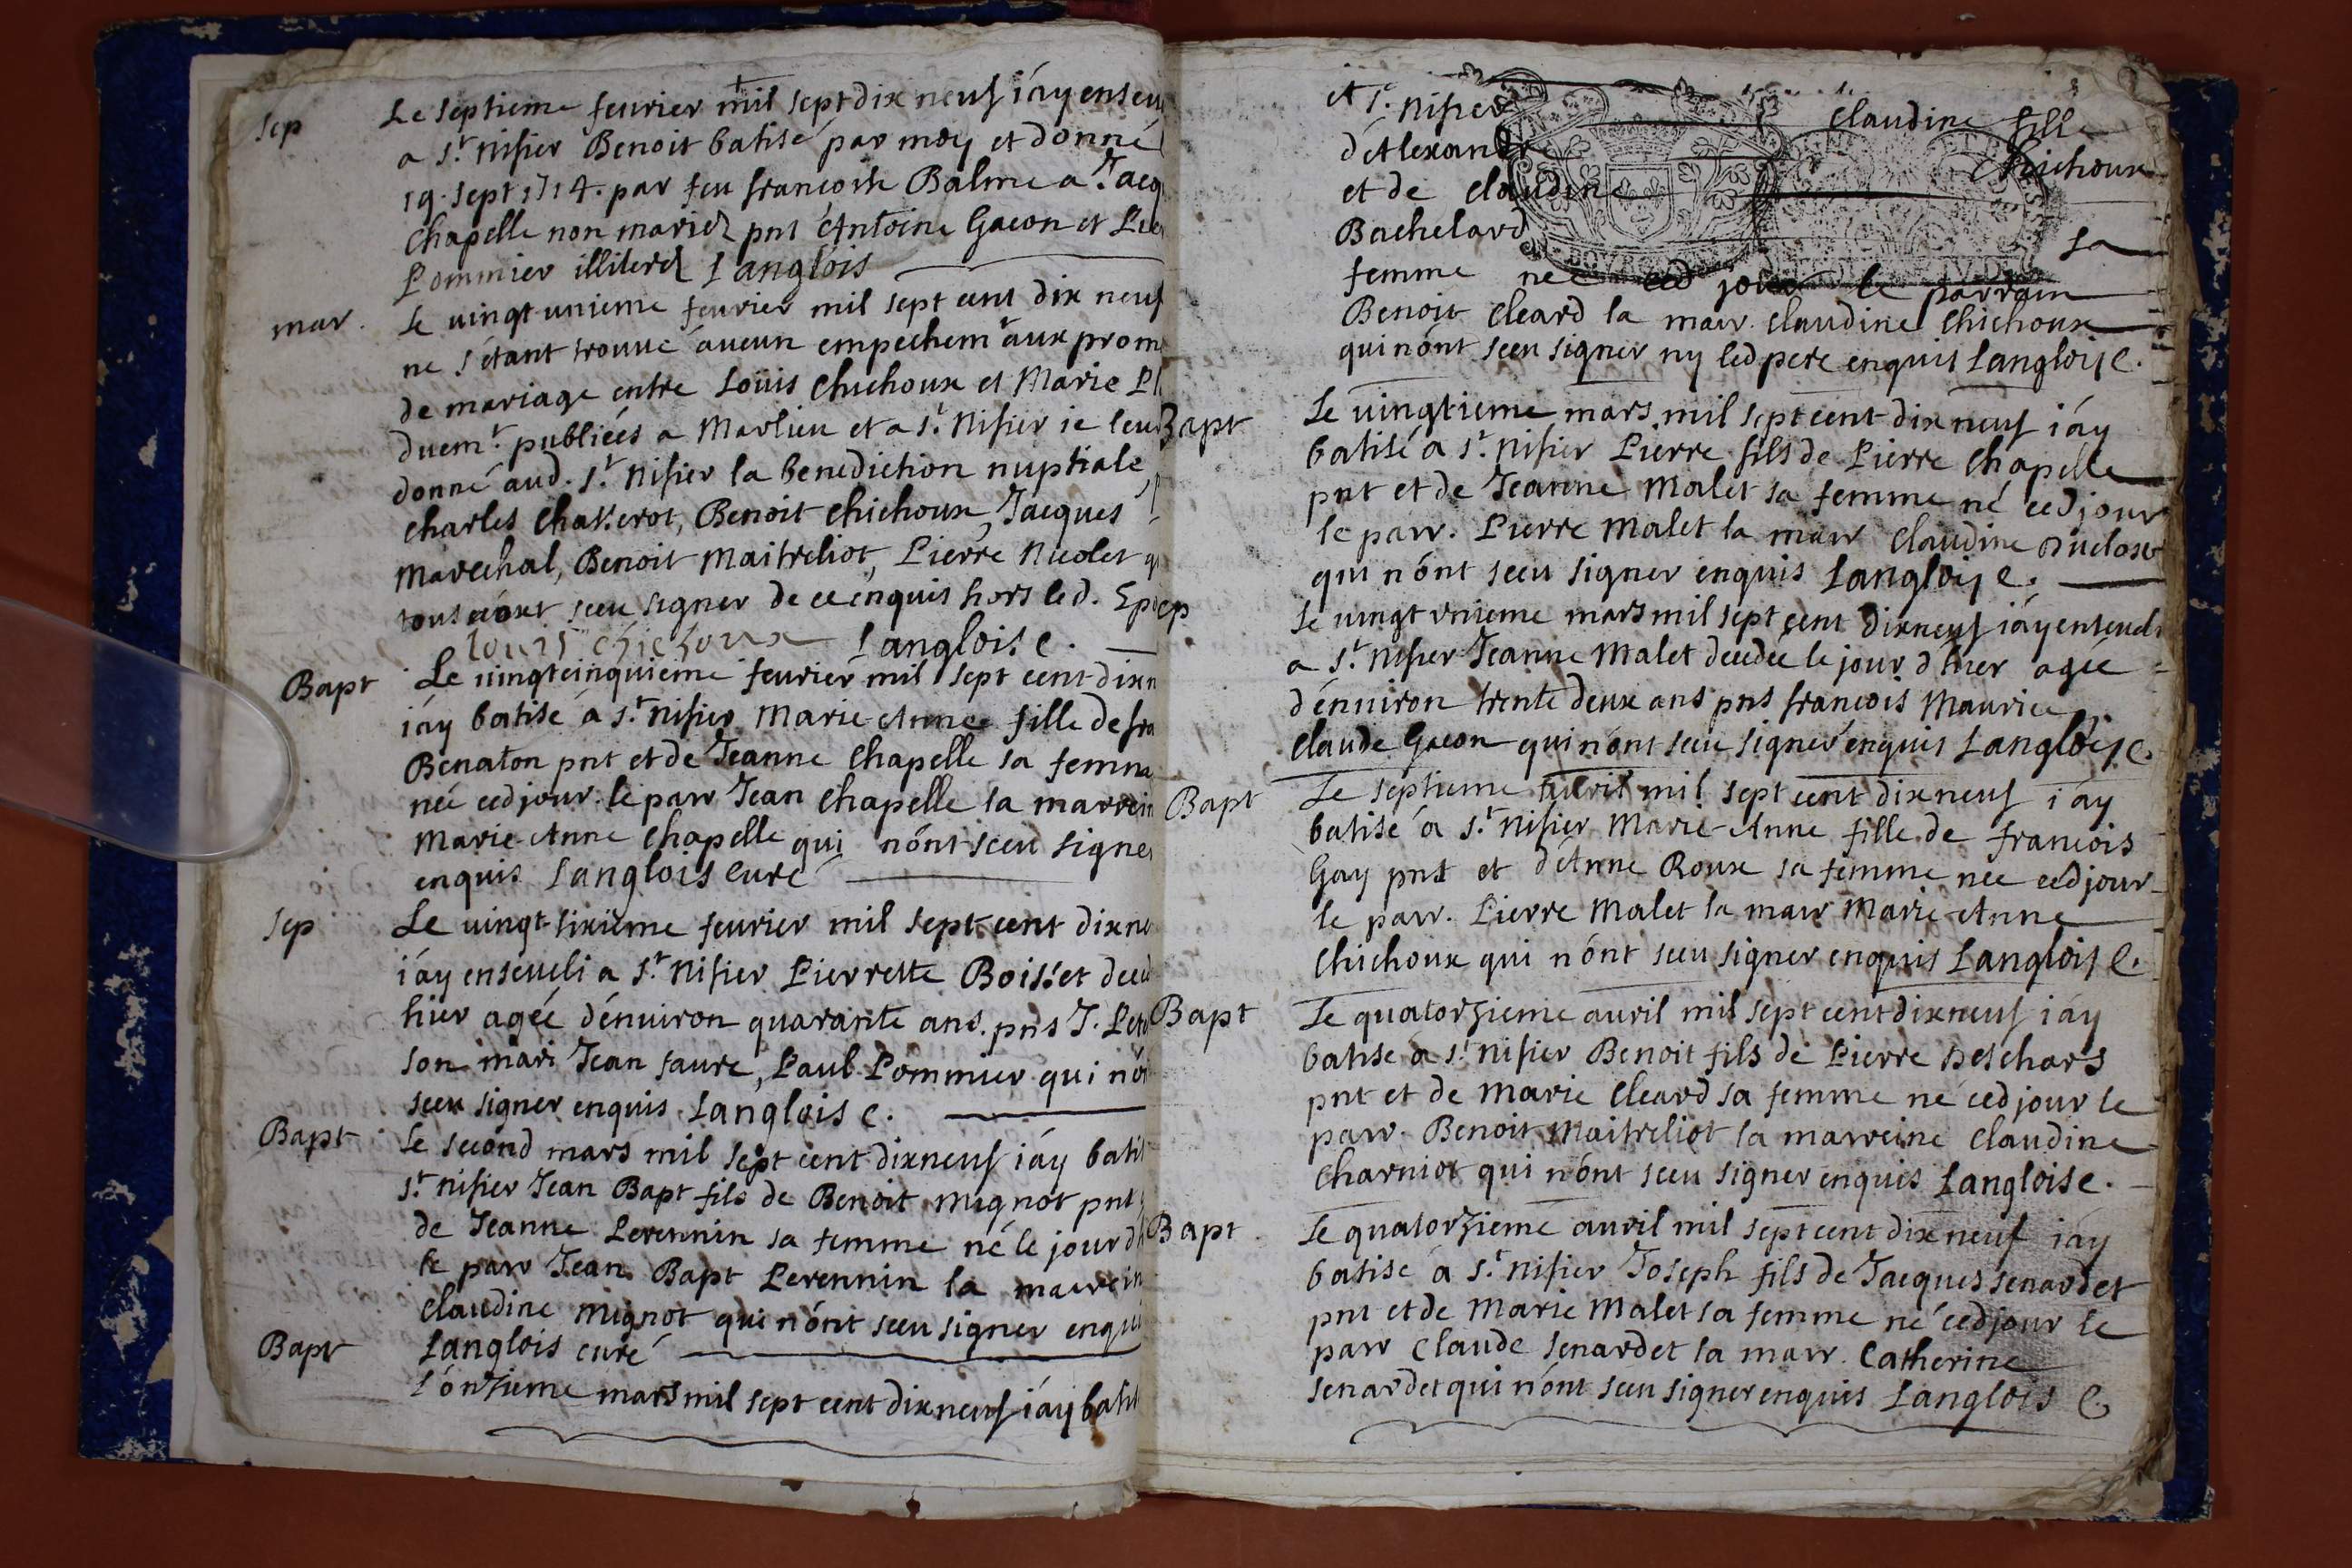 Sep
Le septieme feurier mil sept dix neuf i'ay enseu
a St. Nisier Benoit batisé par moy et donné
19. sept 1714. par feu francoise Balme a Jacq
Chapelle non mariez pnt Antoine Gacon et Pier
Pommier illiterez Langlois
mar.
Le uingt-unieme feurier mil sept cent dix neuf
ne s'étant trouué áucun empechemt aux prom
de mariage entre Loüis Chichoux et Marie Pl
duemt. publiées a Marlieu et a St. Nisier ie leur
donné áud. St. Nisier la benediction nuptiale, p
Charles Chakerot, Benoit Chichoux, Jacques
Marechal, Benoit Maitreliot, Pierre Nicolet q
tous n'ont sceu signer de ce enquis hors led. Epo
Louis chichoux Langlois c.
Bapt
Le uingtcinquieme feurier mil sept cent dixn
i'ay batisé a St. Nisier Marie Anne fille de fra
Benaton pnt et de Jeanne Chapelle sa femme
née ced jour. le parr Jean Chapelle la marrein
Marie-Anne Chapelle qui n'ont sceu signer
enquis Langlois Curé
Sep
Le uingt-sixieme feurier mil sept-cent dixne
i'ay enseueli a St. Nisier Pierrette Boisset deced
hier agée d'enuiron quarante ans. pns J.
son mari Jean faure, Paul Pommier qui n'on
sceu signer enquis Langlois c.
Bapt
Le second mars mil sept cent dixneuf i'ay batis
St. Nisier Jean Bapt fils de Benoit Mignot pnt
de Jeanne Perennin sa femme né le jour d'h
le parr Jean Bapt Perennin la marrein
Claudine Mignot qui n'ont sceu signer enqui
Langlois curé
Bapt
L'onzieme mars mil sept cent dixneuf i'ay batis
A St. Nisier Claudine fille
d'Alexandre Chichoux
et de Claudine
Bachelard sa
femme née ced jour le parrain
Benoit Cleard la marr. Claudine Chichoux
qui n'ont sceu signer ny led pere enquis Langlois C.
Bapt
Le uingtieme mars mil sept cent dix neuf i'ay
batisé a St. Nisier Pierre fils de Pierre Chapelle
pnt et de Jeanne Malet sa femme né ced jour
le parr. Pierre Malet la marr Claudine Duclos
qui n'ont sceu signer enquis Langlois C.
Sep
Le uingt unieme mars mil sept cent dixneuf i'ay enseueli
a St. Nisier Jeanne Malet decedée le jour d'hier agée
d'enuiron trente deux ans pns francois Maurice
Claude Gacon qui n'ont sceu signer enquis Langlois C.
Bapt
Le septieme auril mil sept cent dixneuf i'ay
batisé a St. Nisier Marie-Anne fille de francois
Gay pnt et d'Anne Roux sa femme née ced jour
le parr. Pierre Malet la marr Marie-Anne
Chichoux qui n'ont sceu signer enquis Langlois C.
Bapt
Le quatorzieme auril mil sept cent dixneuf i'ay
batisé a St. Nisier Benoit fils de Pierre Deschars
pnt et de Marie Cleard sa femme né ced jour le
parr. Benoit Maitreliot la marreine Claudine
Charniot qui n'ont sceu signer enquis Langlois c.
Bapt
Le quatorzieme auril mil sept cent dix neuf i'ay
batisé a St. Nisier Joseph fils de Jacques Senardet
pnt et de Marie Malet sa femme né ced jour le
parr Claude Senardet la marr. Catherine
Senardet qui n'ont sceu signer enquis Langlois C.